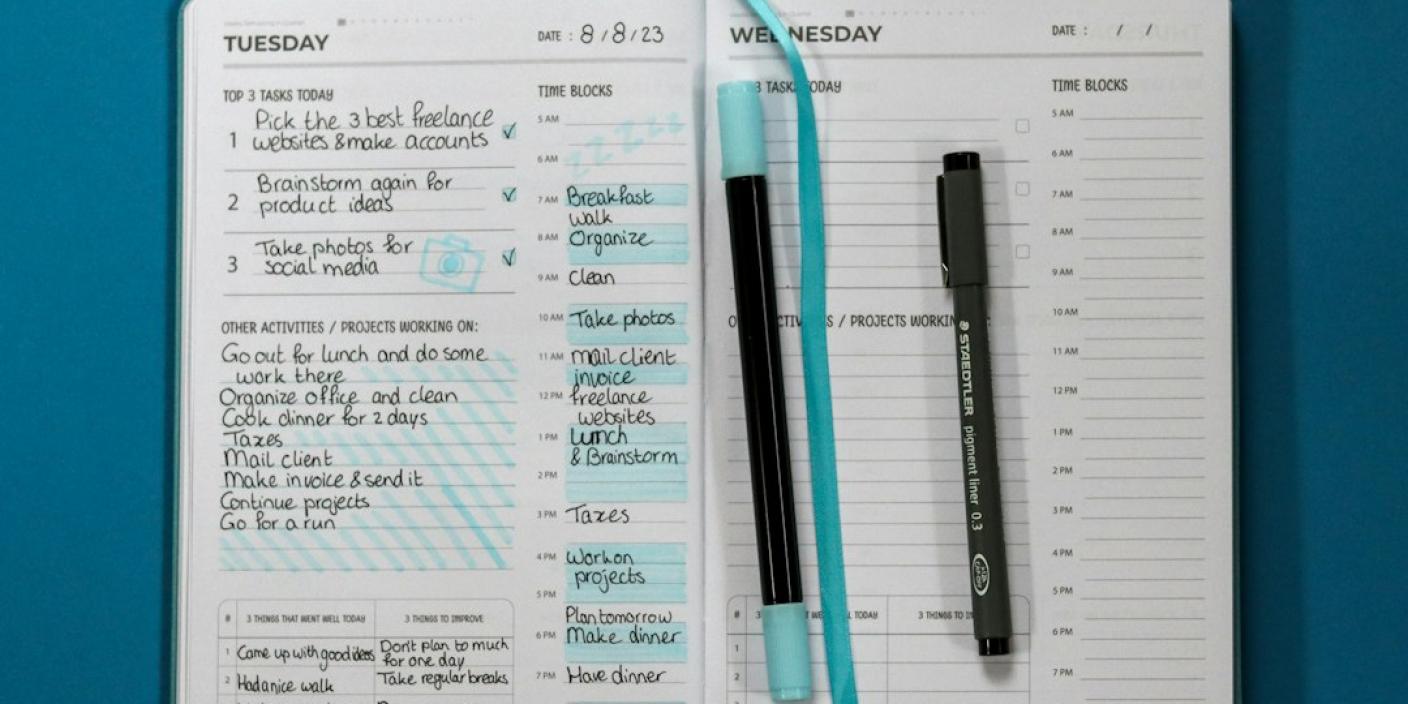 TUESDAY
DATE : 8/8/23
TOP 3 TASKS TODAY
1 Pick the 3 best freelance
websites & make accounts
2 Brainstorm again for
product ideas
3 Take photos for
social media
OTHER ACTIVITIES / PROJECTS WORKING ON:
Go out for lunch and do some
work there
Organize office and clean
Cook dinner for 2 days
Taxes
Mail client
Make invoice & send it
Continue projects
Go for a run
# 3 THINGS THAT WENT WELL TODAY 3 THINGS TO IMPROVE
1 Came up with good ideas Don't plan to much
for one day
2 Had a nice walk Take regular breaks
TIME BLOCKS
5 AM
zzzzz
6 AM
7 AM Breakfast
walk
8 AM Organize
9 AM Clean
10 AM Take photos
11 AM mail client
invoice
12 PM freelance
websites
1 PM Lunch
& Brainstorm
2 PM
3 PM Taxes
4 PM Work on
projects
5 PM
Plan tomorrow
6 PM Make dinner
7 PM Have dinner
WEDNESDAY
DATE : / /
3 TASKS TODAY
/ PROJECTS
# 3 WELL TODAY 3 THINGS TO
1
2
3
STAEDTLER pigment liner 0.3
TIME BLOCKS
5 AM
6 AM
7 AM
8 AM
9 AM
10 AM
11 AM
12 PM
1 PM
2 PM
3 PM
4 PM
5 PM
6 PM
7 PM